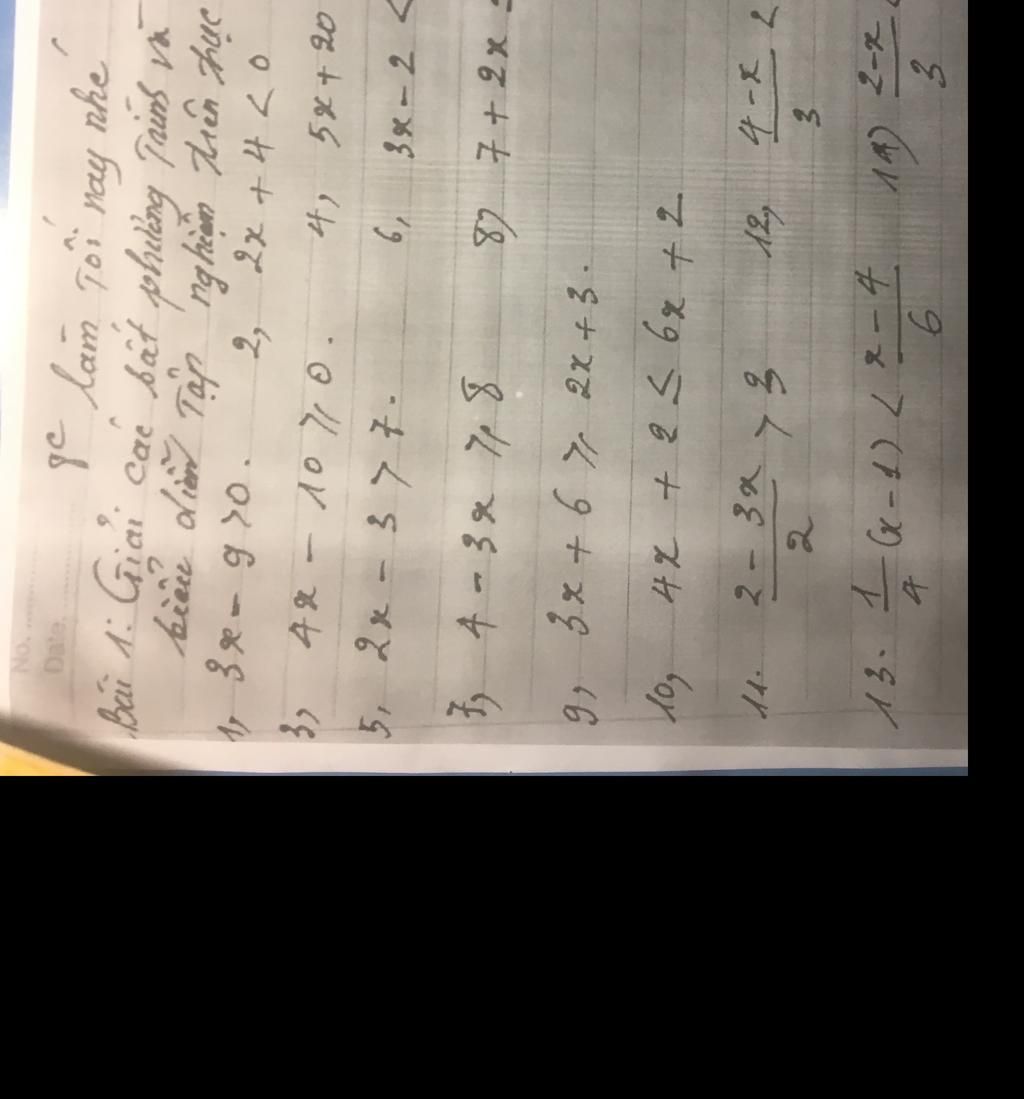 No.
Date.
8C làm tối nay nhé
Bài 1: Giải các bất phương trình và
biểu diễn tập nghiệm trên trục
1, 3x - 9 > 0. 2, 2x + 4 < 0
3, 4x - 10 ≥ 0. 4, 5x + 20
5, 2x - 3 > 7. 6, 3x - 2 <
7, 4 - 3x ≥ 8 8, 7 + 2x
9, 3x + 6 ≥ 2x + 3.
10, 4x + 2 ≤ 6x + 2
11. \frac{2 - 3x}{2} > 12, \frac{4 - x}{3} <
13. \frac{1}{4}(x - 1) < \frac{x - 4}{6} 14) \frac{2 - x}{3} <